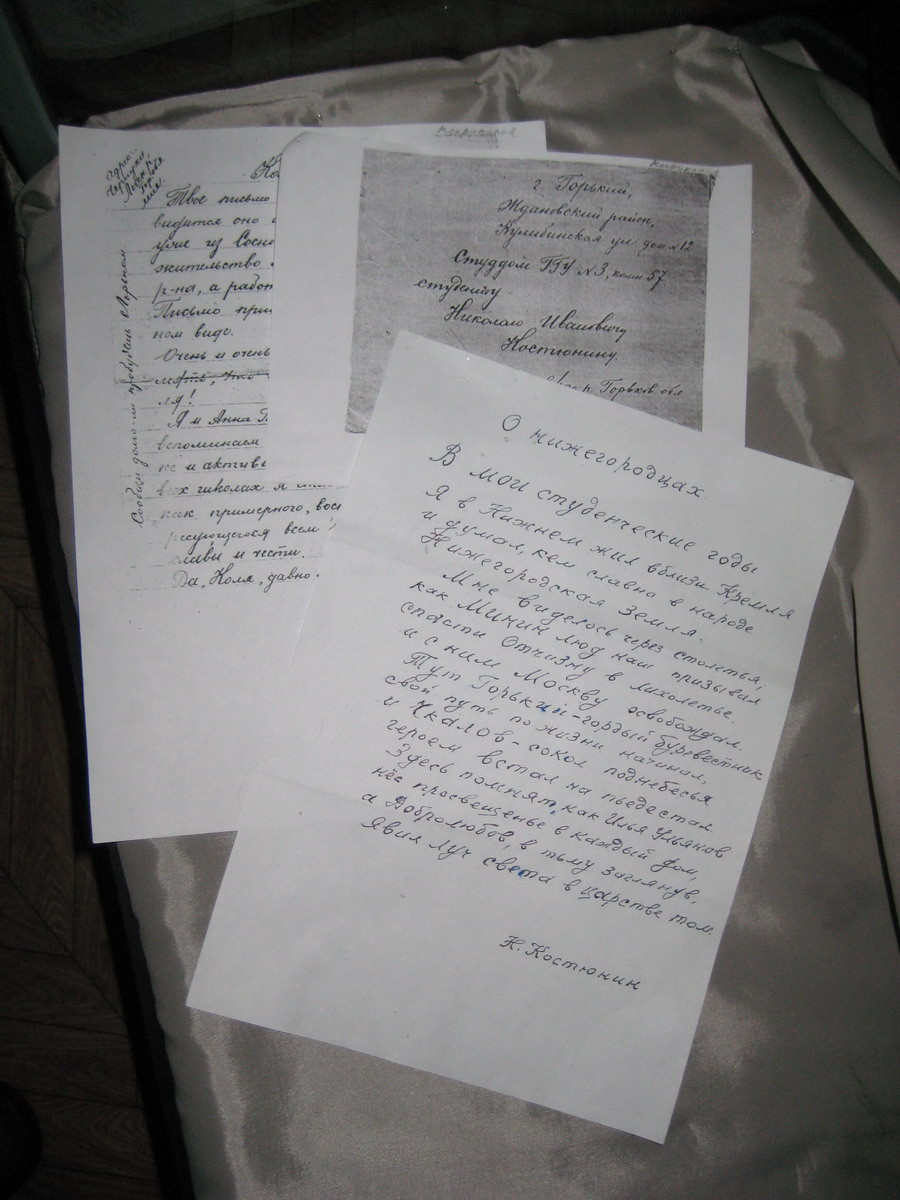 адрес:
Твое письмо
видится оно
уже из Сосно
жительство
р-на, а работ
Письмо при
ном виде.
Очень и очень
ля!
Я и Анна
вспоминаем
ке и активи
всех школах я
как примерного, вос
рисующегося всем
славы и чести.
Да, Коля, давно
Сообщи долго-ли пробудешь
г. Горький,
Ждановский район,
Кулибинская ул дом № 12
Студдом ГГУ № 3, комн 57
студенту
Николаю Ивановичу
Костюнину.
р. п. Горьков обл
О нижегородцах.
В мои студенческие годы
Я в Нижнем жил вблизи Кремля
и думал, кем славна в народе
Нижегородская Земля.
Мне виделось через столетья,
как Минин люд наш призывал
спасти Отчизну в лихолетье.
и с ним Москву освобождал.
Тут Горький-гордый буревестник
свой путь по жизни начинал,
и Чкалов-сокол поднебесья
героем встал на пьедестал
Здесь помнят, как Илья Ульянов
нёс просвещенье в каждый дом,
а Добролюбов, в тьму заглянув,
явил луч света в царстве том.
Н. Костюнин